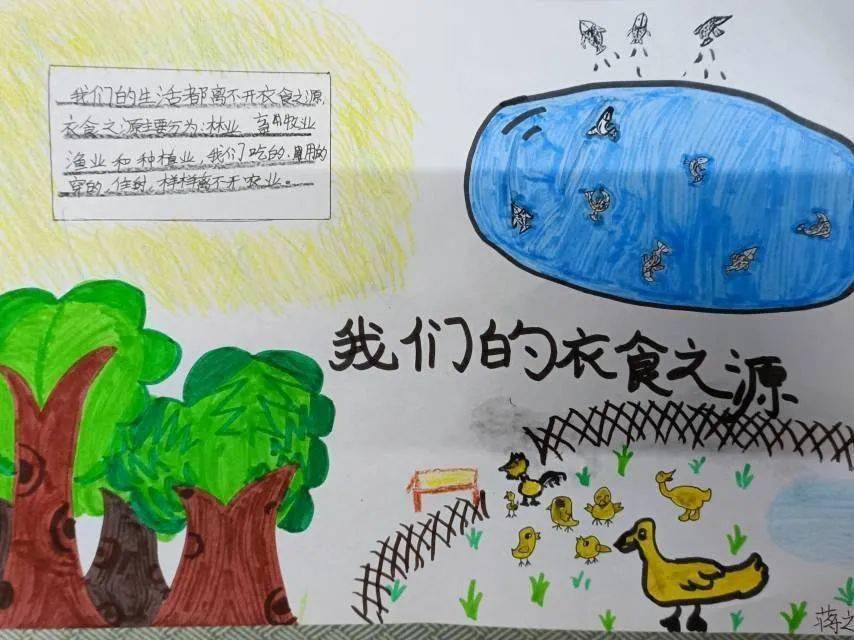 我们的生活都离不开衣食之源,
衣食之源主要分为:林业 畜牧业
渔业和种植业,我们吃的、用的
穿的、住的,样样离不开农业。
我们的衣食之源
蒋之